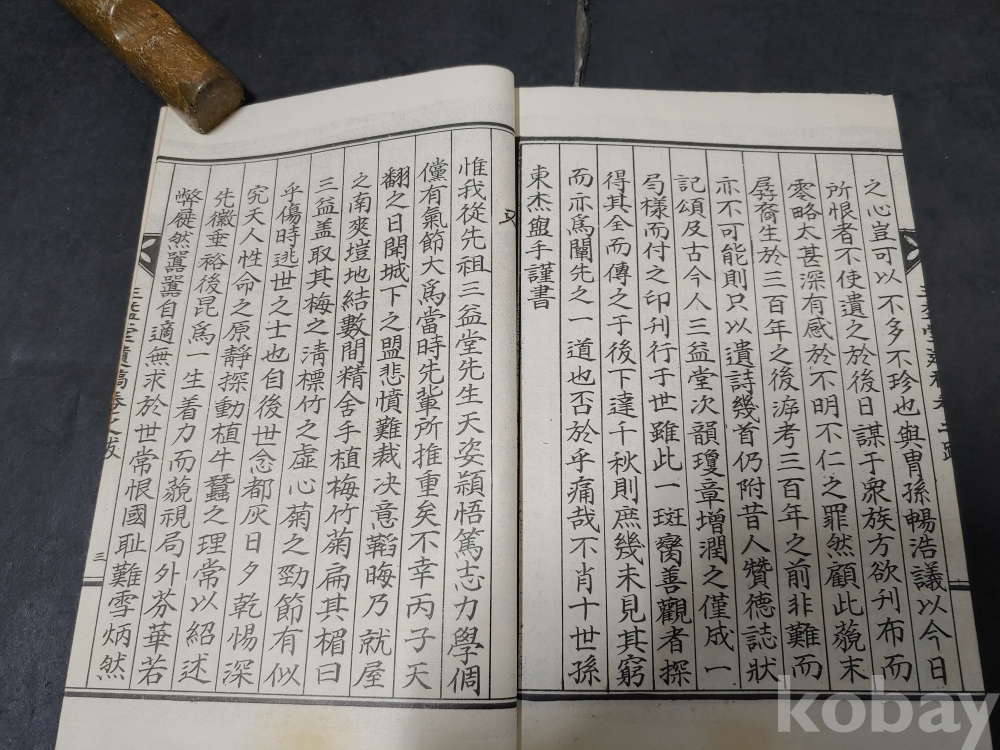 之心豈可以不多不珍也與胄孫暢浩議以今日
所恨者不使遺之於後日謀于衆族方欲刊布而
零略太甚深有感於不明不仁之罪然顧此藐末
孱裔生於三百年之後溯考三百年之前非難而
亦不可能則只以遺詩幾首仍附昔人贊德誌狀
記頌及古今人三益堂次韻瓊章增潤之僅成一
局樣而付之印刊行于世雖此一斑窩善觀者探
得其全而傳之于後下達千秋則庶幾未見其窮
而亦爲闡先之一道也否於乎痛哉不肖十世孫
東杰盥手謹書
又
惟我從先祖三益堂先生天姿穎悟篤志力學倜
儻有氣節大爲當時先軰所推重矣不幸丙子天
翻之日聞城下之盟悲憤難裁决意韜晦乃就屋
之南爽塏地結數間精舍手植梅竹菊扁其楣曰
三益盖取其梅之淸標竹之虛心菊之勁節有似
乎傷時逃世之士也自後世念都灰日夕乾惕深
究天人性命之原靜探動植牛蠶之理常以紹述
先徽垂裕後昆爲一生着力而藐視局外芬華若
弊屣然囂囂自適無求於世常恨國耻難雪炳然
三益堂遺稿卷之跋
三
kobay